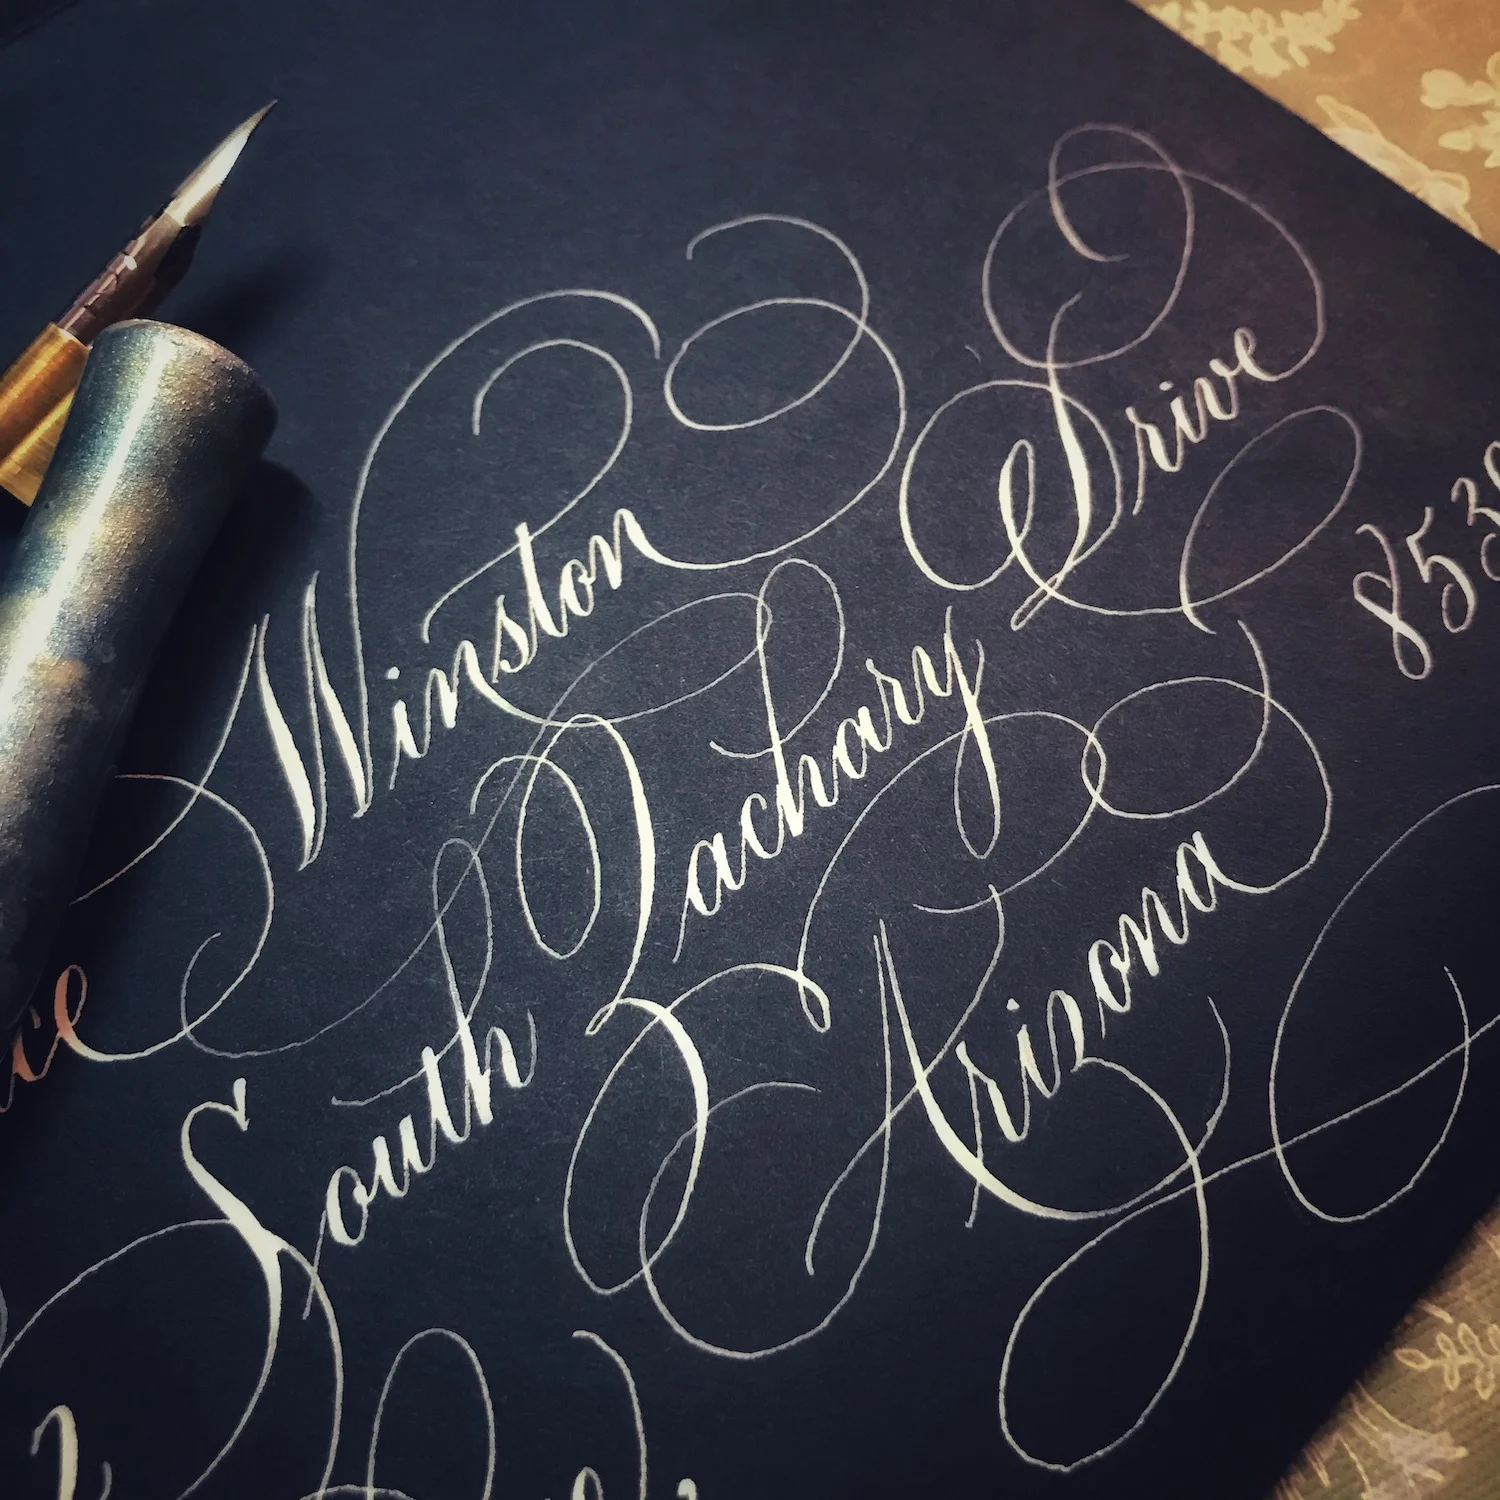 Winston
South Zachary Drive
Arizona 853